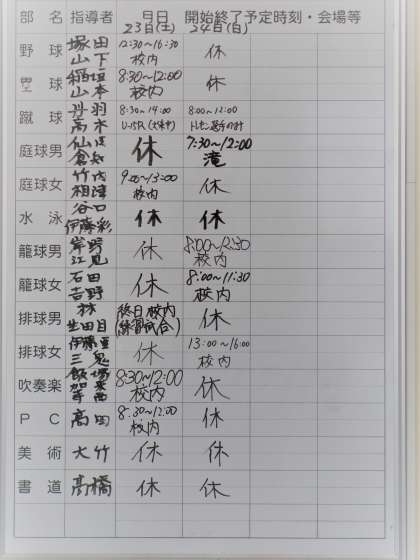 部 名 指導者 月日 開始終了予定時刻・会場等
23日(土) 24日(日)
野球 塚田 山下 12:30～16:30 校内 休
塁球 稲垣 山本 8:30～12:00 校内 休
蹴球 丹羽 高木 8:30～14:00 8:00～12:00
庭球男 休 7:30～12:00 滝
庭球女 竹内 相津 9:00～13:00 校内 休
水泳 谷口 伊藤彩 休 休
籠球男 岸野 江見 休 8:00～12:30 校内
籠球女 石田 吉野 休 8:00～11:30 校内
排球男 林 生田目 終日校内 (練習試合) 休
排球女 伊藤亜 三鬼 休 13:00～16:00 校内
吹奏楽 飯場 8:30～12:00 校内 休
PC 高田 8:30～12:00 校内 休
美術 大竹 休 休
書道 高橋 休 休